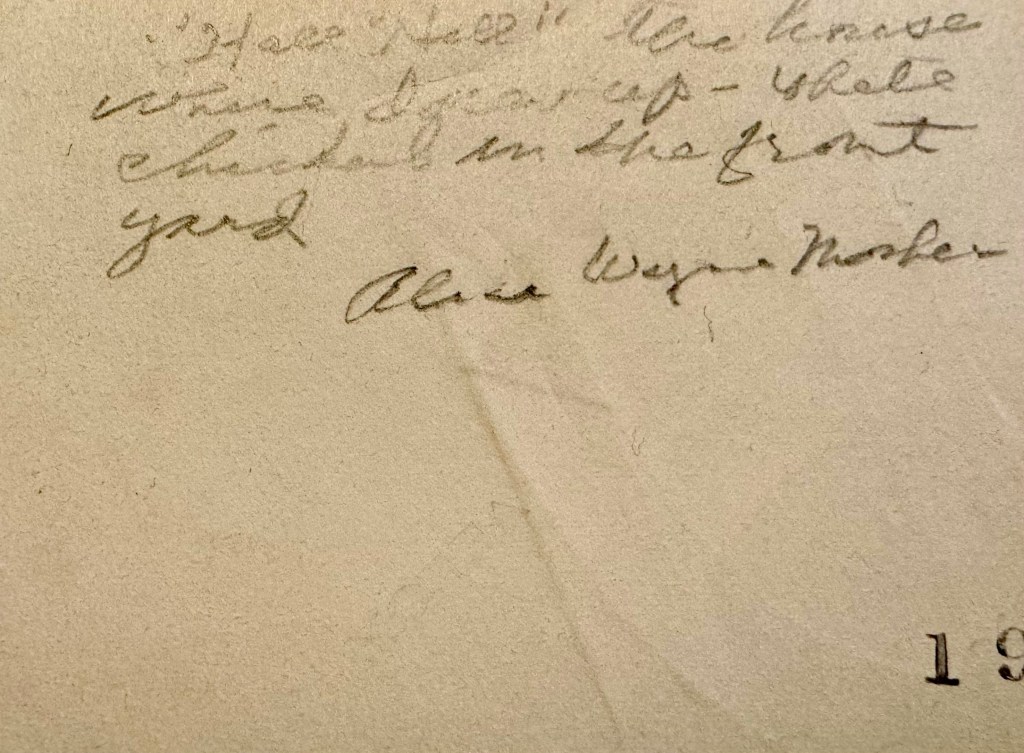 "Hall Hill" the house
where I grew up - white
chickens in the front
yard
Alice Wayne Mosher
19